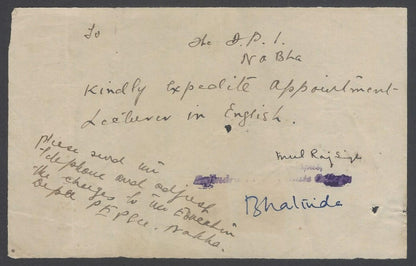 To
The D.P.I.
Nabha
Kindly Expedite Appointment
Lecturer in English.
Please send via
telephone and adjust
the charges to the Education
Deptt PEPSU. Nabha.
Mul Raj Singh
Bhatinda